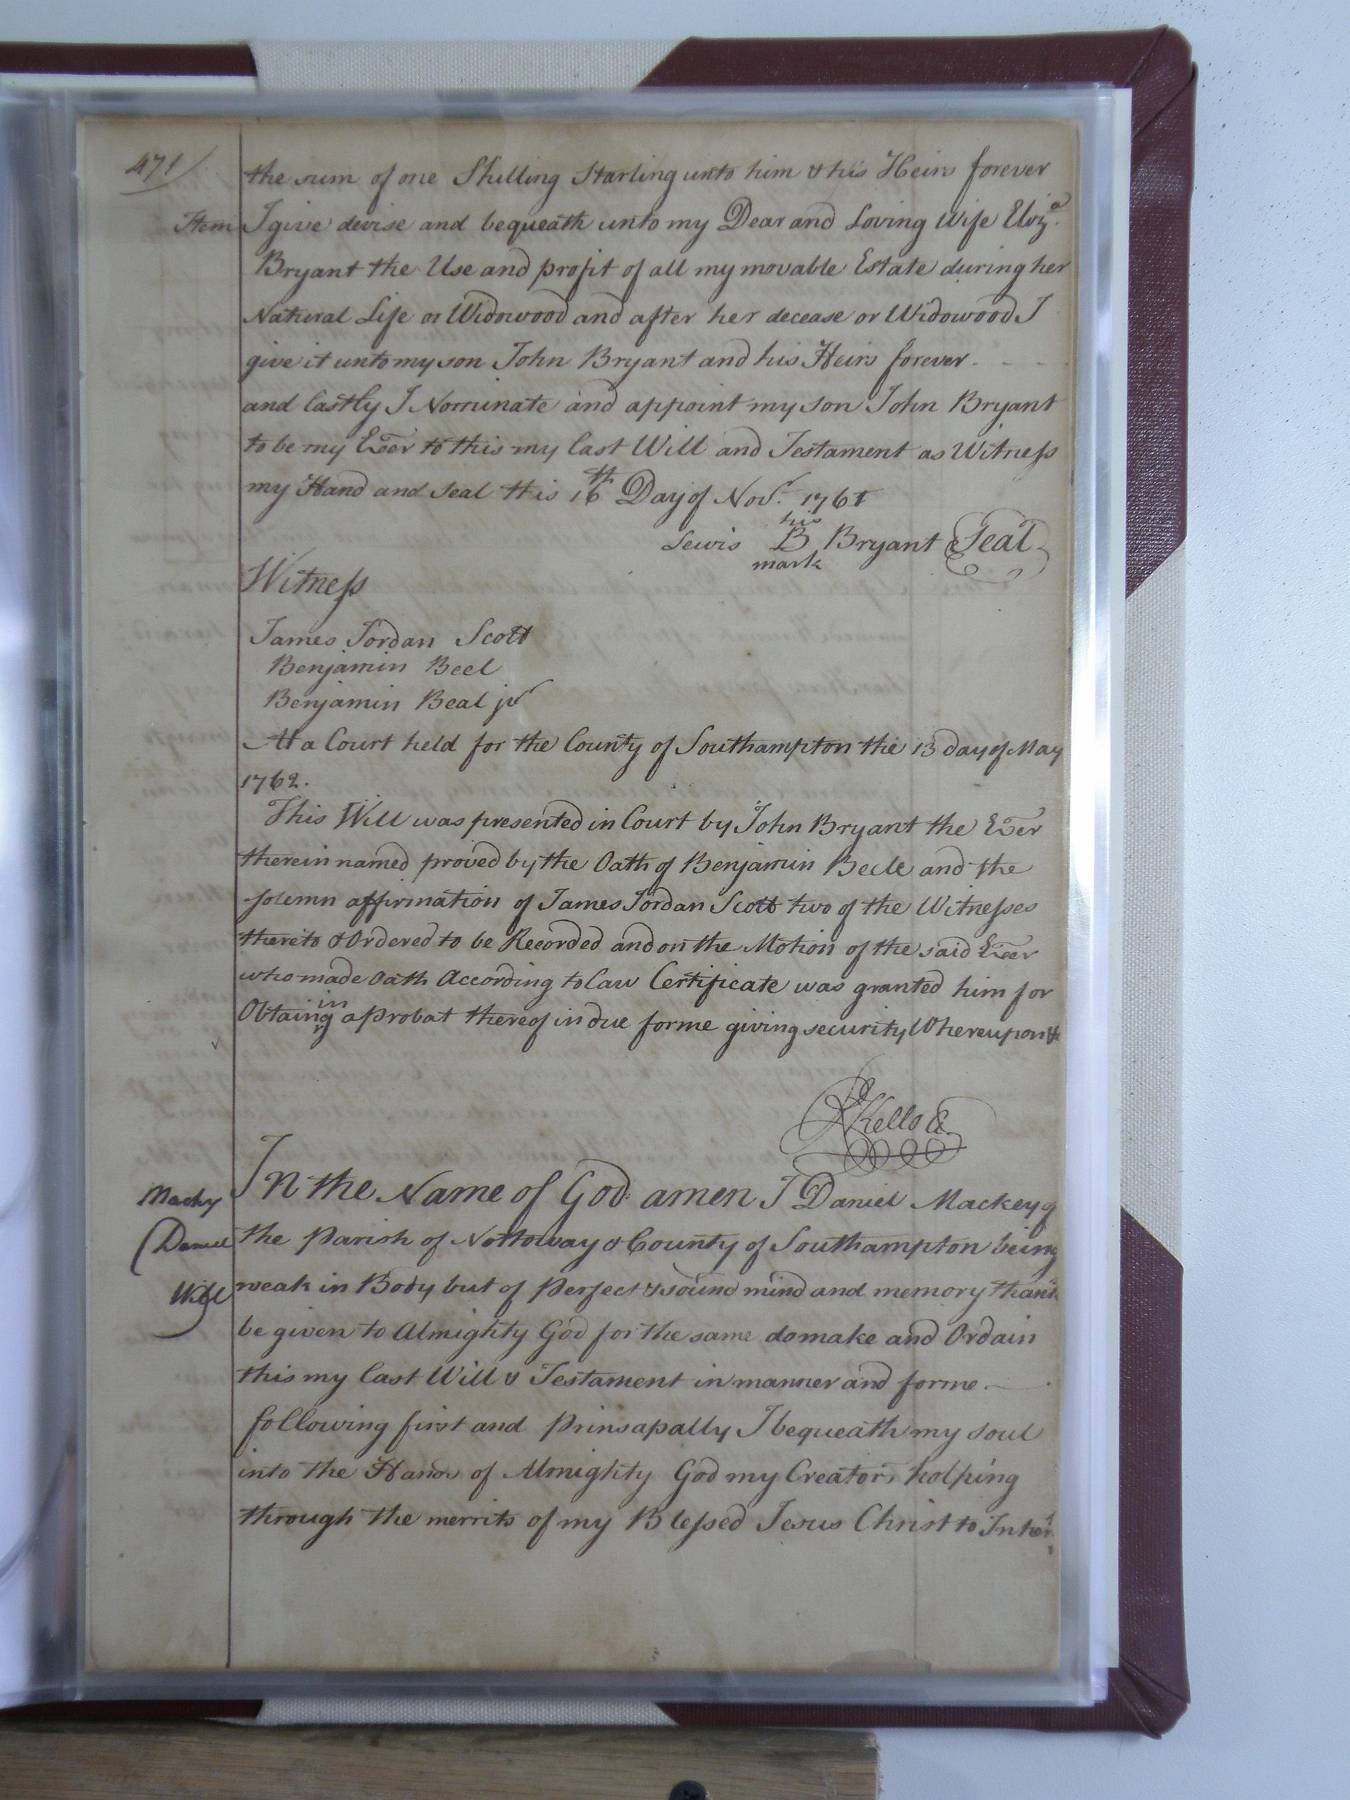 471
the sum of one Shilling Starling unto him & his Heirs forever
Item I give devise and bequeath unto my Dear and Loving Wife Eliz.a
Bryant the Use and profit of all my movable Estate during her
Natural Life or Widowood and after her decease or Widowood I
give it unto my son John Bryant and his Heirs forever. - -
and lastly I Nominate and appoint my son John Bryant
to be my Exer to this my last Will and Testament as Witness
my Hand and Seal this 16th Day of Novr. 1761
his
Lewis B Bryant Seal
mark
Witness
James Jordan Scott
Benjamin Beel
Benjamin Beal jr
At a Court held for the County of Southampton the 13 day of May
1762.
This Will was presented in Court by John Bryant the Exer
therein named proved by the Oath of Benjamin Beele and the
solemn affirmation of James Jordan Scott two of the Witnesses
thereto & Ordered to be Recorded and on the Motion of the said Exer
who made Oath According to Law Certificate was granted him for
Obtaining a Probat thereof in due forme giving security Whereupon &
Kello
In the Name of God amen I Daniel Mackey of
Macky
Daniel
Will
the Parish of Nottoway & County of Southampton being
weak in Body but of Perfect & sound mind and memory thank
be given to Almighty God for the same do make and Ordain
this my Last Will & Testament in manner and forme.
following first and Prinsapally I bequeath my soul
into the Hands of Almighty God my Creator, holping
through the merrits of my Blessed Jesus Christ to Inher